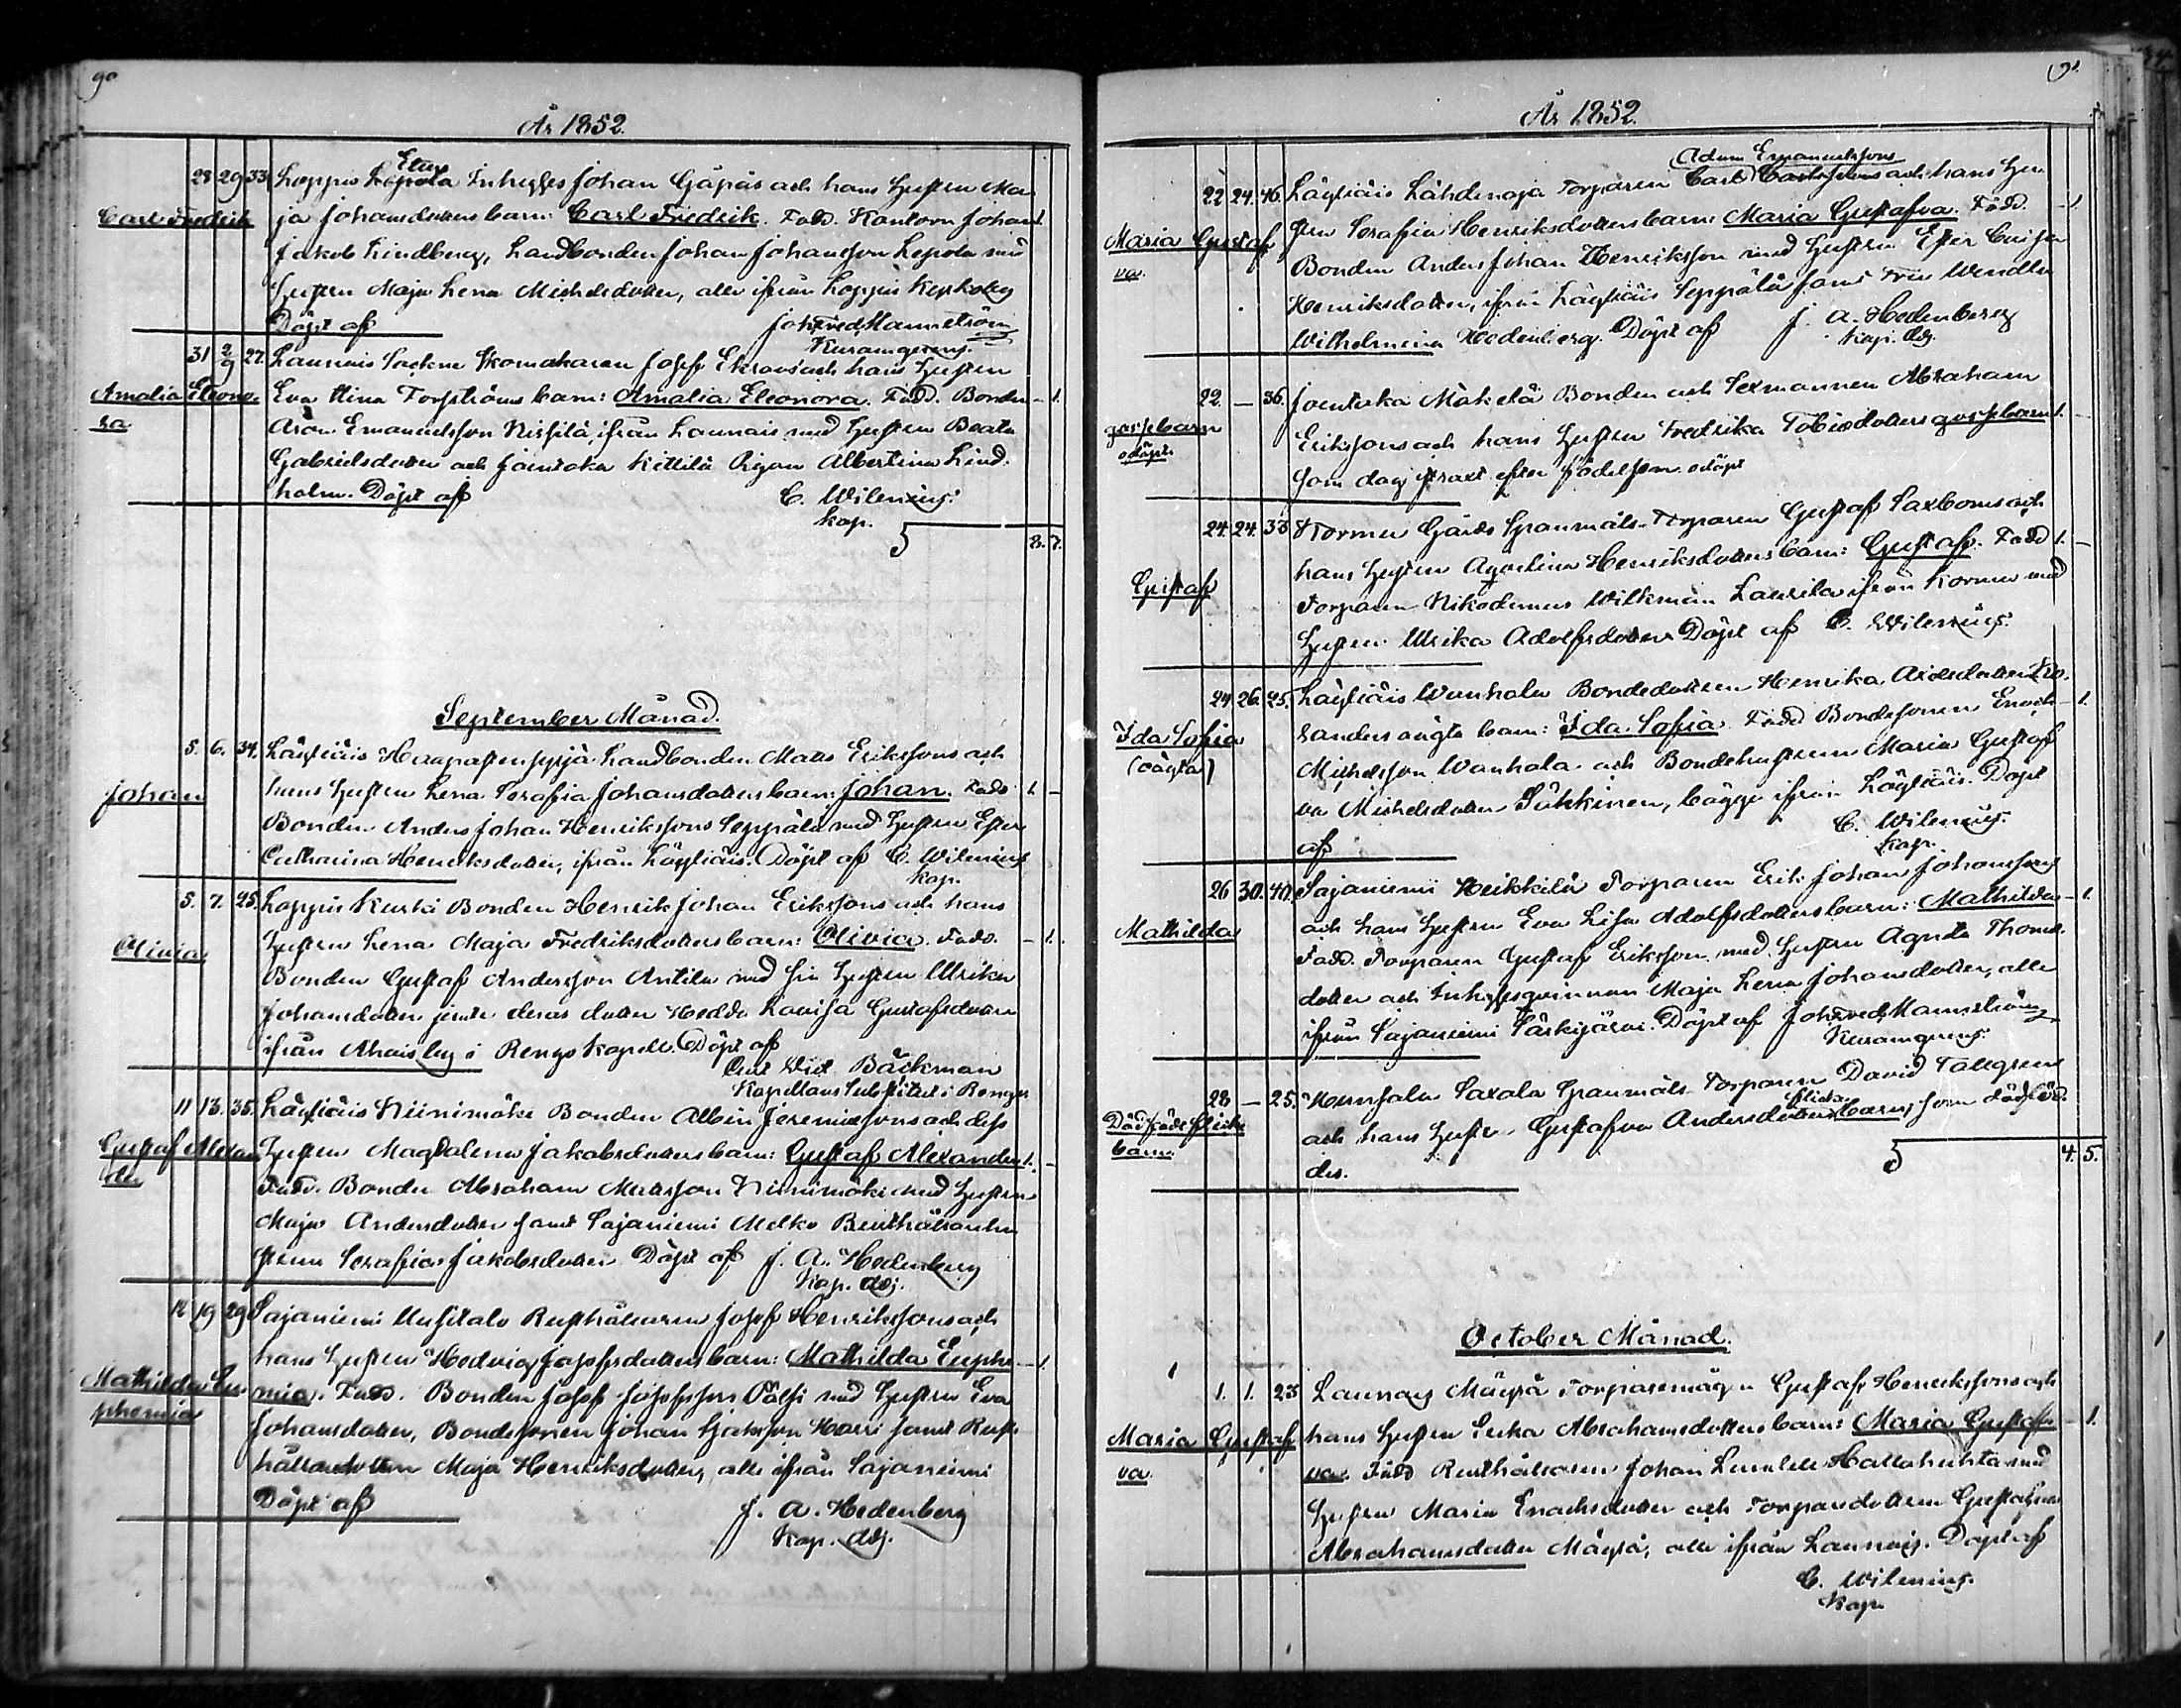 90
År 1852.
28 29 33. Loppis Lepola Inhyses Johan Gåpås och hans Hustru Ma
Carl Fredrik
ja Johansdotters barn: Carl Fredrik. Fadd. Kantorn Johan 1.
Jakob Lindberg, Landbonden Johan Johansson Lepola med
Hustrun Maja Lena Michelsdotter, alla ifrån Loppis Kyrkoby
Döpt af Joh Fred Mannström
Kyramgerens.
31 2/9 27. Launois Skomakaren Josef och hans Hustru
Amalia Eleono- Eva Stina Forsströms barn: Amalia Eleonora. Fadd. Bonden - 1.
ra Aron Emanuelsson Nissilä, ifrån Launois med Hustrun Beata
Gabrielsdotter och Jänteka Kittilä Pigan Albertina Lind-
holm. Döpt af C. Wilenius.
kap.
8. 7.
September Månad.
5. 6. 34. Läyliäis Landbonden Matts Erikssons och
Johan hans Hustru Lena Serafia Johansdotters barn: Johan. Fadd. 1. -
Bonden Anders Johan Henriksson Seppälä med Hustrun Ester
Catharina Henriksdotter, ifrån Läyliäis. Döpt af C. Wilenius
kap.
5. 7. 25. Loppis Kurki Bonden Henrik Johan Erikssons och hans
Olivia Hustru Lena Maja Fredriksdotters barn: Olivia. Fadd. - 1.
Bonden Gustaf Andersson Antila med sin Hustru Ulrika
Johansdotter jemte deras dotter Hedda Lovisa Gustafsdotter
ifrån Ahois by i Rengo Kapell. Döpt af
Bäckman
Kapellans Substitut i Rengo
11 13. 35. Läyliäis Niinimäki Bonden Albin Jeremiassons och dess
Gustaf Alexan- Hustru Magdalena Jakobsdotters barn: Gustaf Alexander 1. -
der Fadd. Bonden Abraham Mattsson Niinimäki med Hustrun
Maja Andersdotter samt Sajaniemi Melko Rusthållarehu-
strun Serafia Jakobsdotter. Döpt af J. A. Hedenberg
Kap. adj.
12 19 29 Sajaniemi Uusitalo Rusthållaren Josef Henrikssons och
hans Hustru Hedvig Josefsdotters barn: Mathilda Euphe- - 1.
Mathilda Eu- mia. Fadd. Bonden Josef Josefsson Pälsi med Hustrun Eva
phemia Johansdotter, Bondesonen Johan Isaksson Harri samt Rust-
hållaredottern Maja Henriksdotter, alla ifrån Sajaniemi
Döpt af J. A. Hedenberg
Kap. adj.
91
År 1852.
Adam Emanuelssons
22 24. 46. Läyliäis Lähdenoja Torparen Carl Carlssons och hans Hu-
Maria Gustaf- stru Serafia Henriksdotters barn: Maria Gustafva. Fadd. - 1.
va. Bonden Anders Johan Henriksson med Hustrun Ester Caisa
Henriksdotter, ifrån Läyliäis Seppälä samt Frun Wendla
Wilhelmina Hedenberg. Döpt af J. A. Hedenberg
Kap. adj.
22. — 36. Jänteka Mäkelä Bonden och Sexmannen Abraham
gossebarn Erikssons och hans Hustru Fredrika Tobiasdotters gossebarn 1. -
odöpt. som dog strax efter födelsen odöpt
24. 24. 33 Kormu Gårds Spanmåls-Torparen Gustaf Saxboms och
Gustaf hans Hustru Agostina Henriksdotters barn: Gustaf. Fadd 1. -
Torparen Nikodemus Wilkman Laurila ifrån Kormu med
Hustru Ulrika Adolfsdotter. Döpt af C. Wilenius.
24. 26. 25. Läyliäis Wanhala Bondedottren Henrika
Ida Sofia oägta barn: Ida Sofia Fadd Bondesonen Enoch - 1.
(oägta) Michelsson Wanhala och Bondehustrun Maria Gustaf
va Michelsdotter Säkkinen, bägge ifrån Läyliäis. Döpt
af C. Wilenius.
kap.
26 30. 40. Sajaniemi Heikkilä Torparen Erik Johan Johanssons
Mathilda och hans Hustru Eva Lisa Adolfsdotters barn: Mathilda - 1.
Fadd. Torparen Gustaf Eriksson med Hustrun Agneta Thomas-
dotter och Inhysesqvinnan Maja Lena Johansdotter, alla
ifrån Sajaniemi Särkijärvi. Döpt af Joh Fred Mannström
Kyramgerens.
28 — 25. Hunsala Saxala Spanmåls Torparen David Tallgrens
Dödfödt flicke och hans Hustru Gustafva Andersdotters flickebarn, som dödföd-
barn. des.
4. 5.
October Månad.
1. 1. 23 Launois Mäyrä Torparemågen Gustaf Henrikssons och
Maria Gustaf- hans Hustru Erika Abrahamsdotters barn: Maria Gustaf- - 1.
va va. Fadd Rusthållaren Johan Hallahuhta med
Hustru Maria Enochsdotter och Torparedottern Gustafva
Abrahamsdotter Mäyrä, alla ifrån Launois. Döpt af
C. Wilenius.
Kap.